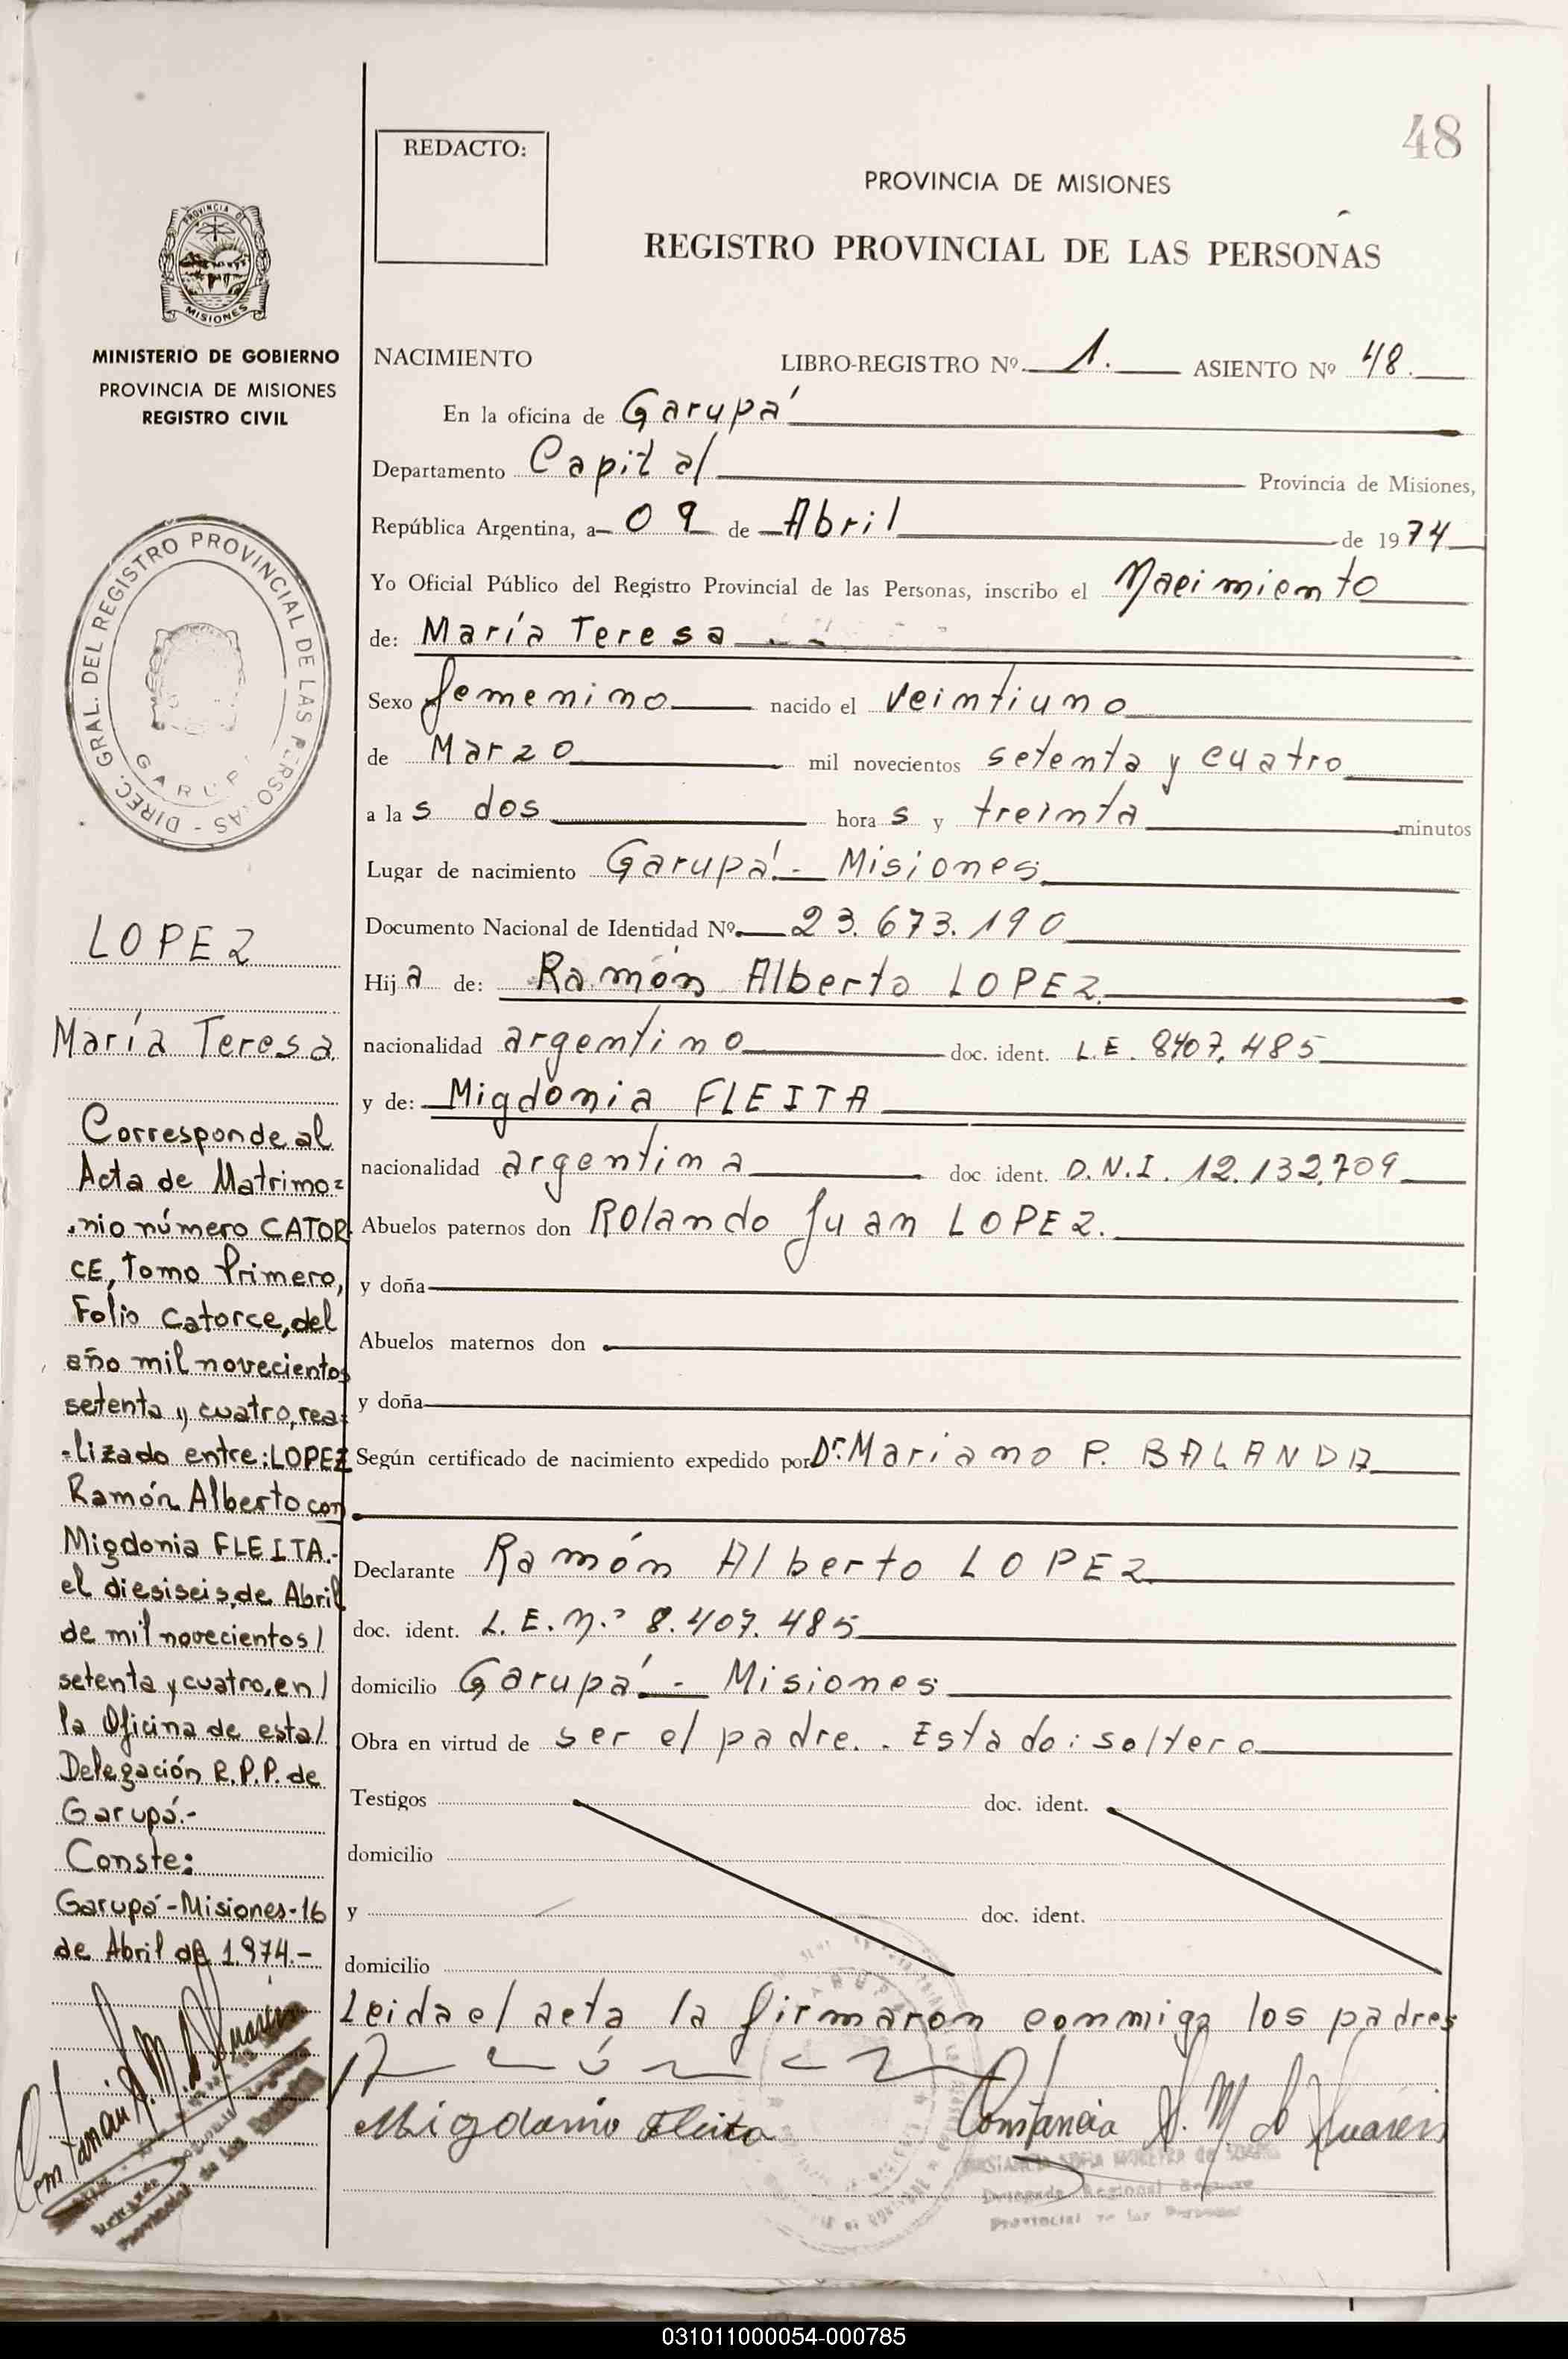 48
REDACTO:
PROVINCIA DE MISIONES
REGISTRO PROVINCIAL DE LAS PERSONAS
PROVINCIA DE
MISIONES
MINISTERIO DE GOBIERNO
PROVINCIA DE MISIONES
REGISTRO CIVIL
DIREC. GRAL. DEL REGISTRO PROVINCIAL DE LAS PERSONAS -
GARUPA
LOPEZ
María Teresa
Corresponde al
Acta de Matrimo=
.nio número CATOR
CE, Tomo Primero,
Folio Catorce, del
año mil novecientos
setenta y cuatro, rea=
=lizado entre: LOPEZ
Ramón Alberto con
Migdonia FLEITA.-
el diesiseis, de Abril
de mil novecientos/
setenta y cuatro, en/
la Oficina de esta/
Delegación R.P.P. de
Garupá.-
Conste:
Garupá-Misiones-16
de Abril de 1.974.-
NACIMIENTO LIBRO-REGISTRO Nº. 1. ASIENTO Nº 48.
En la oficina de Garupá
Departamento Capital Provincia de Misiones,
República Argentina, a 09 de Abril de 1974
Yo Oficial Público del Registro Provincial de las Personas, inscribo el Nacimiento
de: María Teresa
Sexo femenino nacido el veintiuno
de Marzo mil novecientos setenta y cuatro
a las dos horas y treinta minutos
Lugar de nacimiento Garupá.- Misiones
Documento Nacional de Identidad Nº. 23.673.190
Hija de: Ramón Alberto LOPEZ.
nacionalidad argentino doc. ident. L.E. 8407.485
y de: Migdonia FLEITA
nacionalidad argentina doc. ident. D.N.I. 12.132.709
Abuelos paternos don Rolando Juan LOPEZ.
y doña
Abuelos maternos don
y doña
Según certificado de nacimiento expedido por Dr. Mariano P. BALANDA
Declarante Ramón Alberto LOPEZ
doc. ident. L.E.N.º 8.407.485
domicilio Garupá.- Misiones
Obra en virtud de ser el padre.. Estado: soltero
Testigos doc. ident.
domicilio
y doc. ident.
domicilio
Leida el acta la firmaron conmigo los padres
Migdonia Fleita Constancia S. M. de Suarez
031011000054-000785